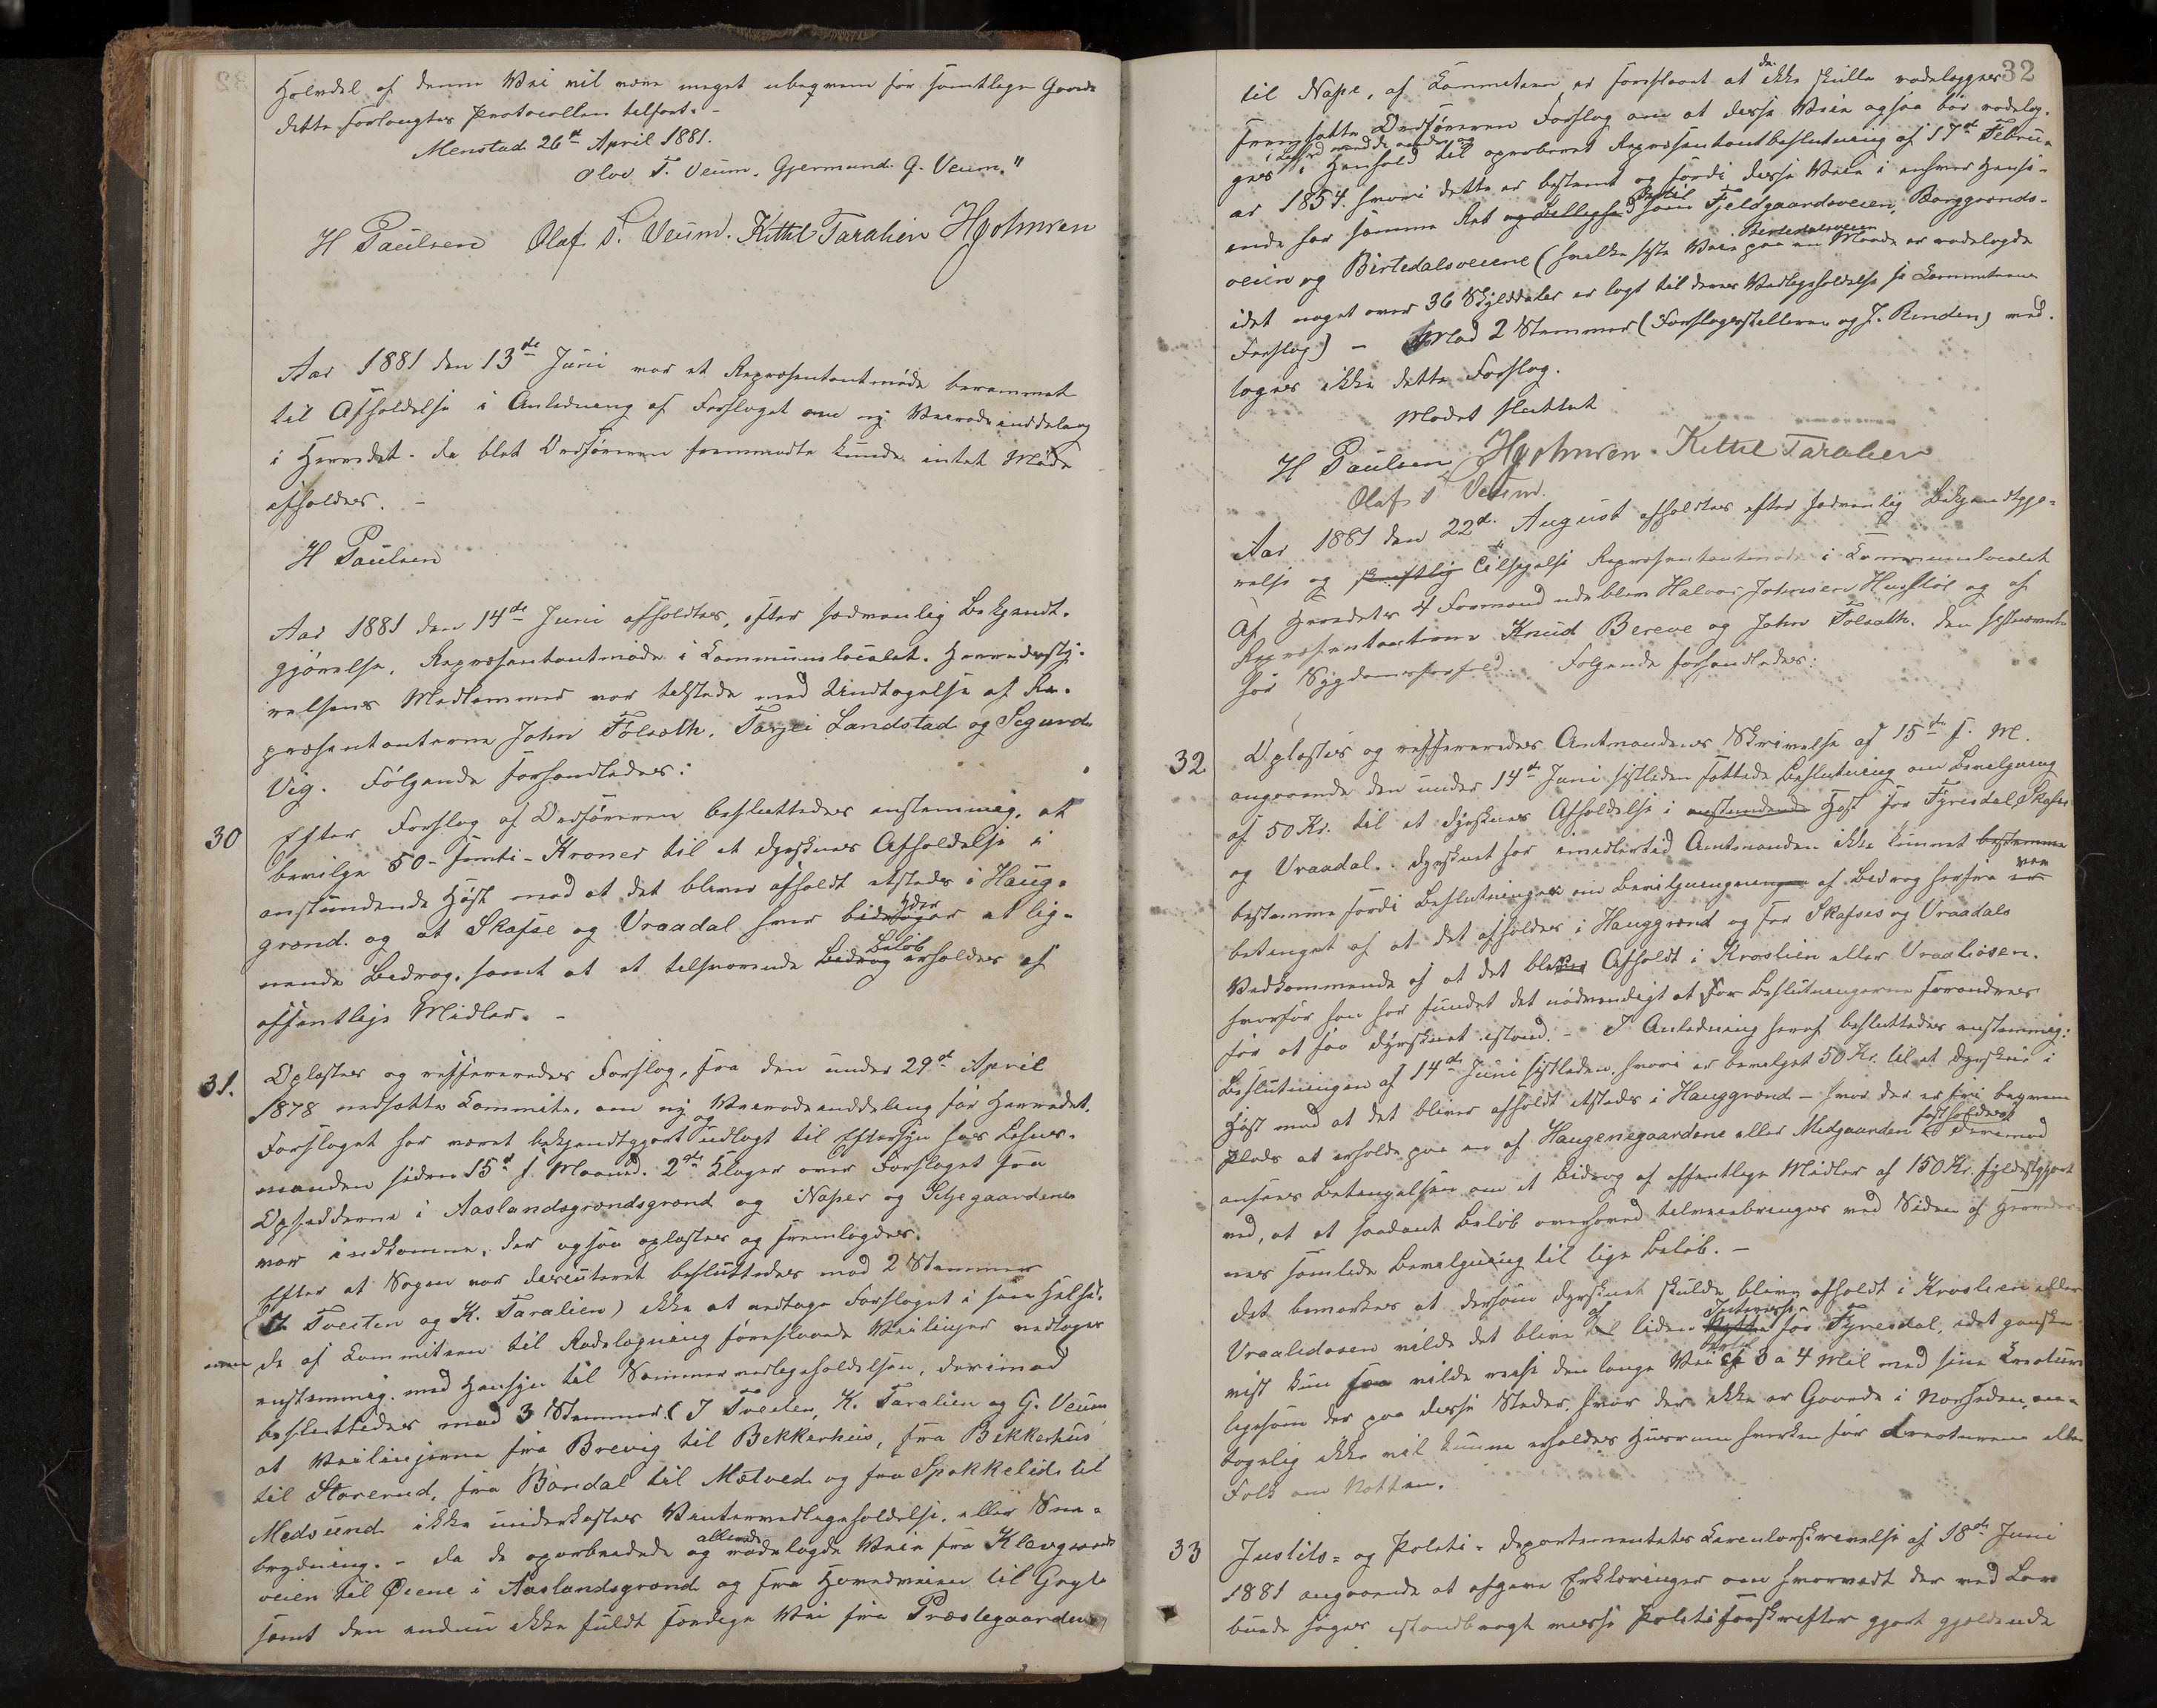 Halvdel af denne Vei vil være meget ubeqvem for samtlege Gaarde
dette forlangtes Protocollen tilført. -
Menstad 26de April 1881.
Olav T. Veum. Gjermund G. Veum."
H Paulsen Olaf T. Veum. Kittil Taralien H Johnsen
Aar 1881 den 13de Juni var et Repræsentantmøde berammet
til Afholdelse i Anledning af Forslaget om ny Veirodeinddeling
i Herredet. da blot Ordføreren fremmødte kunde intet Møde
afholdes. -
H Paulsen
Aar 1881 den 14de Juni afholdtes, efter sædvanlig Bekjendt-
gjørelse, Repræsentantmøde i Communelocalet. Herredssty-
relsens Medlemmer var tilstede med Undtagelse af Re-
præsentanterne John Folsæth, Tarjei Landstad og Segund
Vig. Følgende forhandledes:
30 Efter Forslag af Ordføreren besluttedes enstemmig, at
bevilge 50 - femti - Kroner til et Dyrskues Afholdelse i
anstundende Høst mod at det bliver afholdt etsteds i Haug-
grænd. og at Skafse og Vraadal hver bidrager yder et lig-
nende Bedrag, samt at et tilsvarende Bedrag Beløb erholdes af
offentlige Midler. -
31. Oplæstes og reffereredes Forslag, fra den under 29de April
1878 nedsatte Commite, om ny Veirodeinddeling for Herredet.
Forslaget har været bekjendtgjort og udlagt til Eftersyn hos Lehns-
manden siden 15de f. Maaned. 2de Klager over Forslaget fra
Opsidderne i Aaslandsgrændsgrænd og Naper og Seljegaardene
var indkomne, der ogsaa oplæstes og fremlagdes.
Efter at Sagen var descuteret besluttedes mod 2 Stemmer
(J. Tveiten og K. Taralien) ikke at vedtage Forslaget i sin Helhed,
men de af Commiteen til Rodelægning foreslaaede Veilinjer vedtoges
enstemmig med Hensyn til Sommervedlegeholdelsen, derimod
besluttedes mod 3 Stemmer (J Tveiten, K. Taralien og G. Veum
at Veilinjerne fra Brevig til Bekkerhus, fra Bekkerhus
til Storerud, fra Bondal til Mælved og fra Spokkelid til
Medsund ikke underkastes Vintervedlegeholdelse, eller Sne-
brydning. - da de oparbeidede og allerede rodelagde Veie fra Klevgaards
veien til Øiene i Aaslandsgrænd og fra Hovedveien til Gryte
samt den endnu ikke fuldt færdige Vei fra Præstegaarden
32
til Nape, af Commiteen er foreslaaet at de ikke skulle rodelægges
fremsatte Ordføreren Forslag om at desse Veie ogsaa bør rodelæg-
ges i Henhold til approberet Repræsentantbeslutning af 17de Febru-
ar 1854. hvori dette er bestemt og fordi desse Veie i enhver Hense-
ende har samme Ret og Billighed hertil som Fjeldgaardsveien, Borggrænds-
veien og Birtedalsveiene (hvilke sidste Veie Birtedalsveien paa en Maade er rodelagde
idet noget over 36 Skylddaler er lagt til deres Vedlegeholdelse se Commiteens
Forslag) - Mod 2 Stemmer (Forslagsstilleren og J. Rinden) ved-
toges ikke dette Forslag.
Mødet sluttet
H Paulsen H Johnsen. Kittil Taralien
Olaf T Veum.
Aar 1881 den 22de August afholdtes efter sædvanlig Bekjendtgjø-
relse og skriftlig Tilsigelse Repræsentantmøde i Communelocalet
Af Herredets 4 Formænd udeblev Halvor Johnsen Husstøl og af
Repræsentanterne Knud Bereve og John Folsæth. den sidstnævnte
for Sygdomsforfald. Følgende forhandledes:
32 Oplæstes og reffereredes Amtmandens Skrivelse af 15de f. M.
angaaende den under 14de Juni sidstleden fattede Beslutning om Bevilgning
af 50 Kr. til et Dyrskues Afholdelse i anstundende Høst for Fyresdal, Skafse
og Vraadal. Dyrskuet har imidlertid Amtmanden ikke kunnet bestemme
bestemme fordi Beslutningen om Bevilgningen af Bedrag herfra er var
betinget af at det afholdes i Hauggrænd og for Skafses og Vraadals
Vedkommende af at det blev Afholdt i Kroslien eller Vraaliosen.
hvorfor han har fundet det nødvendigt at Beslutningerne forandres
for at faa Dyrskuet istand. - I Anledning heraf besluttedes enstemmig:
Beslutningen af 14de Juni sidstleden, hvori er bevilget 50 Kr. til et Dyrskue i
Høst mod at det bliver afholdt etsteds i Hauggrænd - hvor der er fri beqvem
Plads at erholde paa en af Haugenegaardene eller Midgaarden fastholdes. Derimod
ansees Betingelsen om et Bidrag af offentlige Midler af 150 Kr. fyldestgjort
ved, at et saadant Beløb overhoved tilveiebringes ved Siden af Herreder-
nes samlede Bevilgning til lige Beløb. -
Det bemærkes at dersom Dyrskuet skulde blive afholdt i Kroslien eller
Vraaliosen vilde det blive af liden Nytte Interesse for Fyresdal, idet ganske
vist kun faa vilde reise den lange Vei af 3 a 4 Mil med sine Creature
ligesom der paa desse Steder, hvor der ikke er Gaarde i Nærheden, an-
tagelig ikke vil kunne erholdes Husrum hverken for Creaturene eller
Folk om Natten.
33 Justits- og Politi-Departementets Circulærskrivelse af 18de Juni
1881 angaaende at afgive Erklæringer om hvorvidt der ved Lov
burde søges istandbragt visse Politiforskrifter gjort gjældende